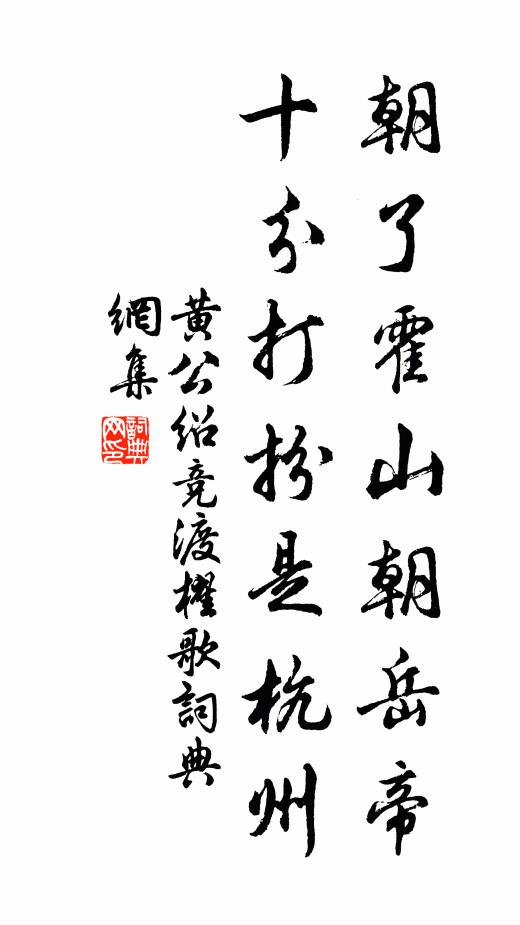 朝了霍山朝岳帝
十分打扮是杭州
黄公绍竞渡櫂歌詞典
網集
詞典网印